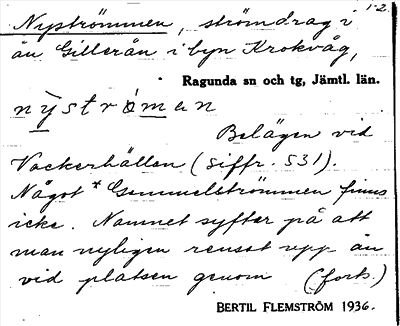 1-2.
Nyströmmen, strömdrag i
ån Gillerån i byn Krokvåg,
Ragunda sn och tg, Jämtl. län.
nyströmən
Belägen vid
Vackerhällan (siffr. 531).
Något * Gammelströmmen finns
icke. Namnet syftar på att
man nyligen rensat upp ån
vid platsen genom (forts.)
BERTIL FLEMSTRÖM 1936.